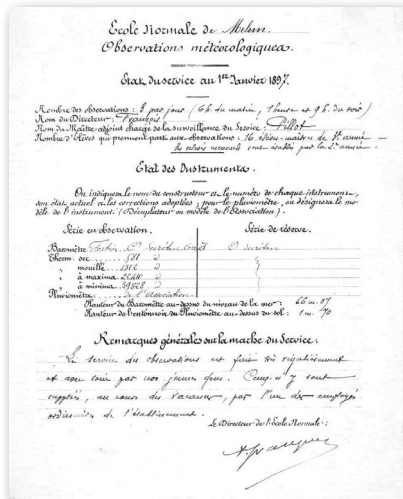 Ecole Normale de Melun
Observations météorologiques.
Etat du service au 1er Janvier 1897.
Nombre des observations: 3 par jour (6h. du matin, 1 heure et 9h. du soir)
Nom du Directeur:
Nom du Maître-adjoint chargé de la surveillance du Service: Pillot
Nombre d'Elèves qui prennent part aux observations: 16 élèves-maîtres de 1e année
les relevés mensuels sont établis par la 2e année.
Etat des Instruments.
On indiquera le nom du constructeur et le numéro de chaque instrument,
son état actuel et les corrections adoptées; pour le pluviomètre, on désignera le mo-
dèle de l'instrument. (Décuplateur ou modèle de l'Association).
Série en observation. Série de réserve.
Baromètre Fortin, Secrétan Secrétan
Therm. sec 581
" mouillé 1512
" à maxima
" à minima
Pluviomètre de l'association
Hauteur du Baromètre au-dessus du niveau de la mer: 66m.07
Hauteur de l'entonnoir du Pluviomètre au-dessus du sol: 1m.70
Remarques générales sur la marche du Service:
Le service des observations est fait très régulièrement
et avec soin par nos jeunes gens. Ceux-ci y sont
suppléés, au cours des vacances, par l'un des employés
ordinaires de l'établissement.
Le Directeur de l'Ecole Normale: